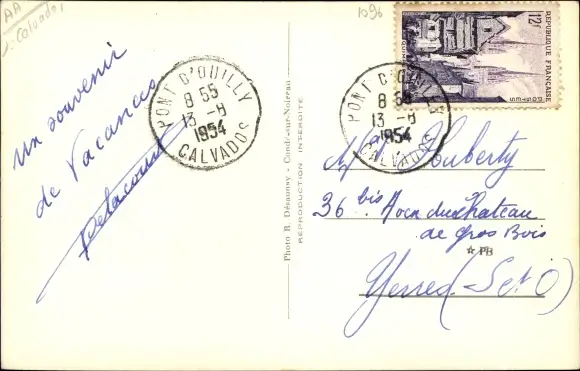 AA
Calvados
1096
un souvenir
de Vacances
Delacour
PONT D'OUILLY
8 55
13 -8
1954
CALVADOS
Photo R. Désaunay - Condé-sur-Noireau
REPRODUCTION INTERDITE
12F
RÉPUBLIQUE FRANÇAISE
POSTES
PONT D'OUILLY
8 55
13 -8
1954
CALVADOS
Houberty
36 bis. du château
de gros Bois
PB
Yerres (S et O)